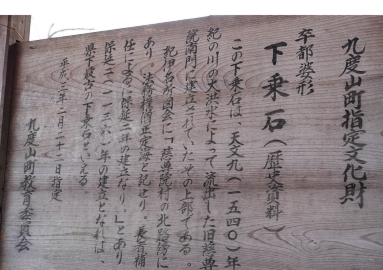 九度山町指定文化財
卒都姿形
下乗石(歴史資料)
この下乗石は、天文九(一五四〇)年
紀の川の大洪水によって流出した旧慈尊
院南門に建立されていたその上部である。
紀伊名所図会に「慈尊院村の北路傍に
あり。法務権僧正定海と記せり。長者補
任によるに保延二年の建立なり。」とあり
保延二(一一三六)年の建立となれば、
県下最古の下乗石といえる
平成二年二月二十二日指定
九度山町教育委員会